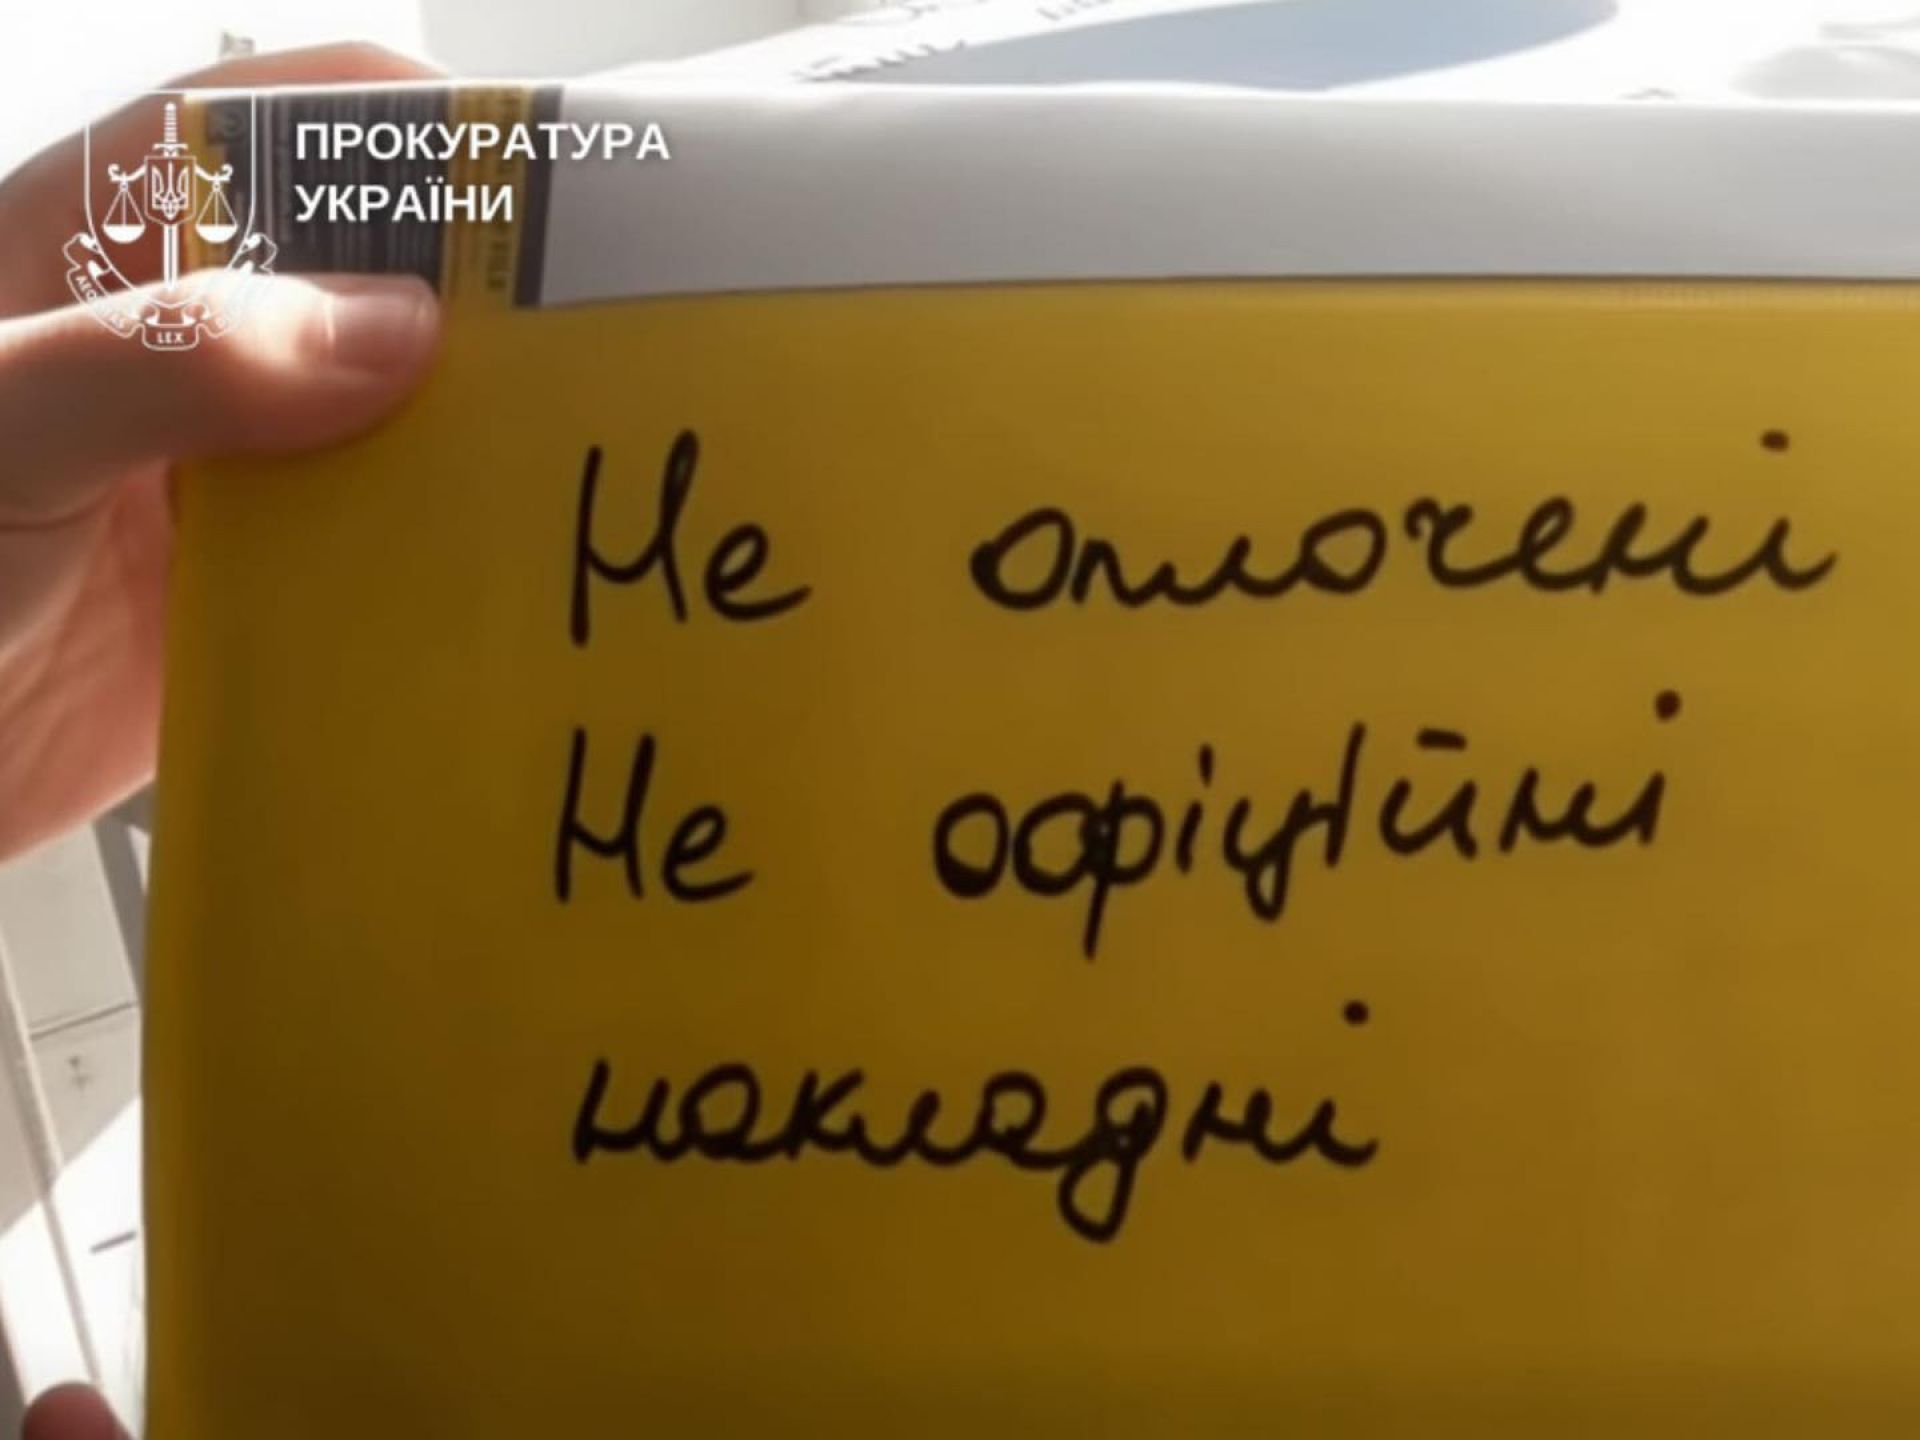 ПРОКУРАТУРА
УКРАЇНИ
LEX
Не оплочені
Не офіційні
накладні